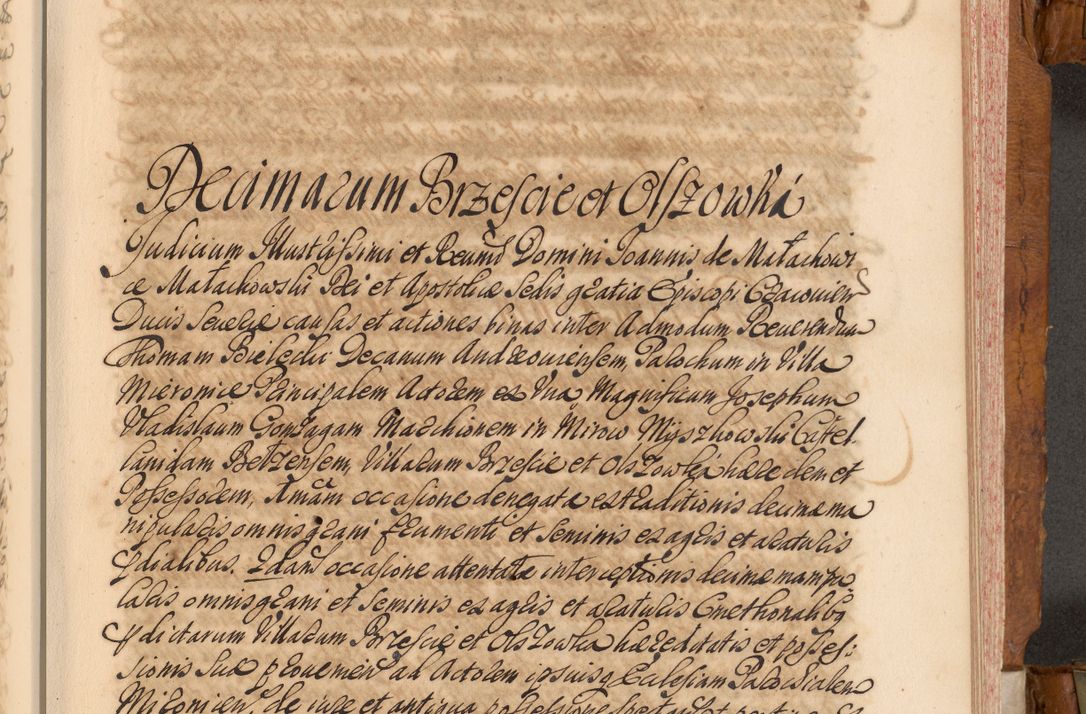 Decimarum Brzescie et Olszowká
Judicium Illustrissimi et Reúnd Domini Joannis de Małachowi
ce Małachowski Dei et Apostolicæ Sedis gratia Episcopi Cracovien
Ducis Severiæ causas et actiones binas inter Admodum Reverendum
Thomam Bielecki Decanum Andreoviensem, Parochum in Villa
Mieronice Principalem Actorem ex Una, Magnificum Josephum
Vladislaum Gonzagam Marchionem in Mirow Myszkowski Castel
lanidam Belzensem, Villarum Brzescie et Olszowká hæredem et
Possessorem, 1mam occasione denegatæ extraditionis decimæ ma
nipularis omnis grani frumenti et seminis ex agris et araturis
prædialibus. 2dam occasione attentatæ interceptionis decimæ manipu
laris omnis grani et seminis ex agris et araturis Cmethonalibus
prædictarum Villarum Brzescie et Olszowka hæreditatis et posses:
sionis suæ provenien ad Actorem ipsiusque Ecclesiam Parochialem
Mironien, de jure et antiqua possessione